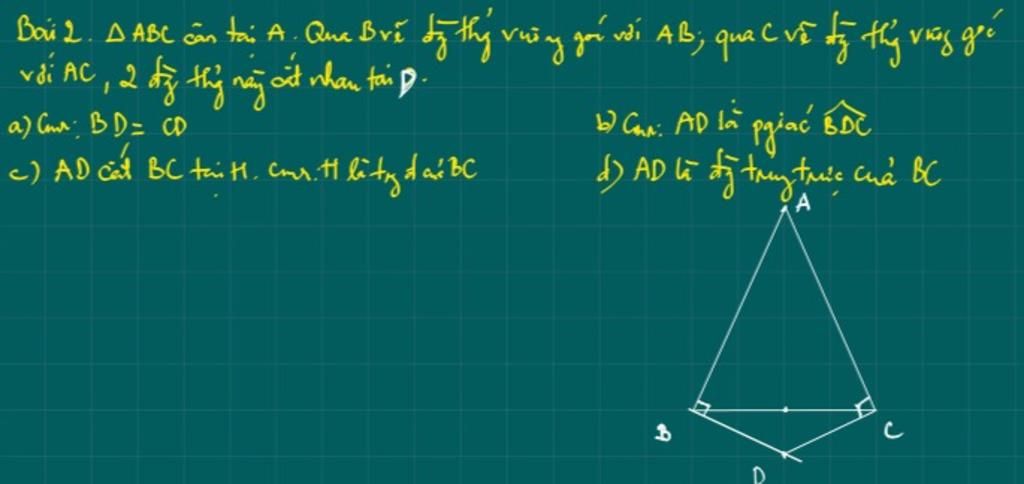 Bài 2. Δ ABC cân tại A. Qua B vẽ đg thg vuông góc với AB; qua C vẽ đg thg vuông góc
với AC, 2 đg thg này cắt nhau tại D.
a) Cmr: BD = CD
b) Cmr: AD là pgiác BDC
c) AD cắt BC tại H. cmr. H là tg đ của BC
d) AD là đg trung trực của BC
A
B
C
D